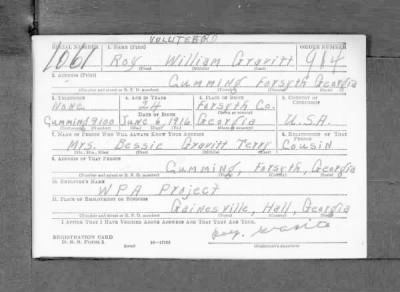 VOLUTEERD
SERIAL NUMBER 1. NAME (Print) ORDER NUMBER
1061 Roy William Gravitt 984
(First) (Middle) (Last)
2. ADDRESS (Print)
Cumming Forsyth Georgia
(Number and street or R. F. D. number) (Town) (County) (State)
3. TELEPHONE 4. AGE IN YEARS 5. PLACE OF BIRTH 6. COUNTRY OF CITIZENSHIP
None 24 Forsyth Co.
DATE OF BIRTH
Cumming 9100 June 8, 1916 Georgia U.S.A.
7. NAME OF PERSON WHO WILL ALWAYS KNOW YOUR ADDRESS 8. RELATIONSHIP OF THAT PERSON
Mrs. Bessie Gravitt Terry Cousin
(Mr., Mrs., Miss) (First) (Middle) (Last)
9. ADDRESS OF THAT PERSON
Cumming, Forsyth, Georgia
(Number and street or R. F. D. number) (Town) (County) (State)
10. EMPLOYER'S NAME
WPA Project
11. PLACE OF EMPLOYMENT OR BUSINESS
Gainesville, Hall, Georgia
(Number and street or R. F. D. number) (Town) (County) (State)
I AFFIRM THAT I HAVE VERIFIED ABOVE ANSWERS AND THAT THEY ARE TRUE.
REGISTRATION CARD
D. S. S. FORM 1
(over)
(Registrant's signature)